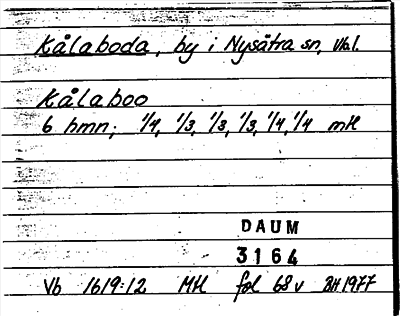 Kålaboda, by i Nysätra sn, Vbl.
Kålaboo
6 hmn; 1/4, 1/3, 1/3, 1/3, 1/4, 1/4 mtl
DAUM
3164
Vb 1619:12 Mtl fol 68v BH 1977